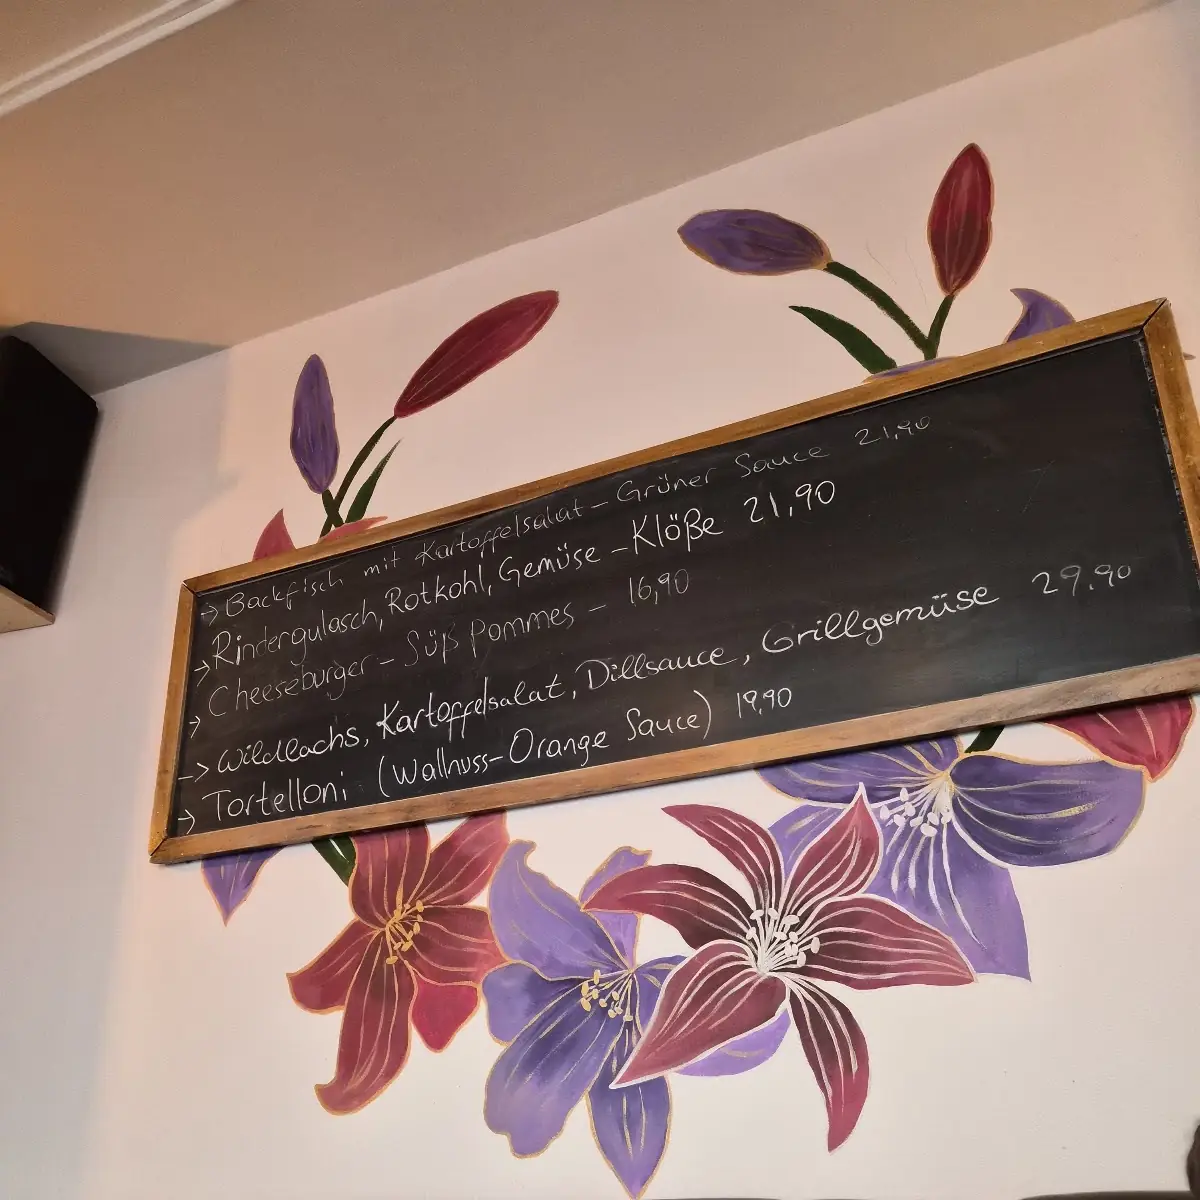 -> Backfisch mit Kartoffelsalat – Grüner Sauce 21,90
-> Rindergulasch, Rotkohl, Gemüse – Klöße 21,90
-> Cheeseburger – Süß Pommes – 16,90
-> Wildlachs, Kartoffelsalat, Dillsauce, Grillgemüse 29.90
-> Tortelloni (Wallnuss-Orange Sauce) 19.90